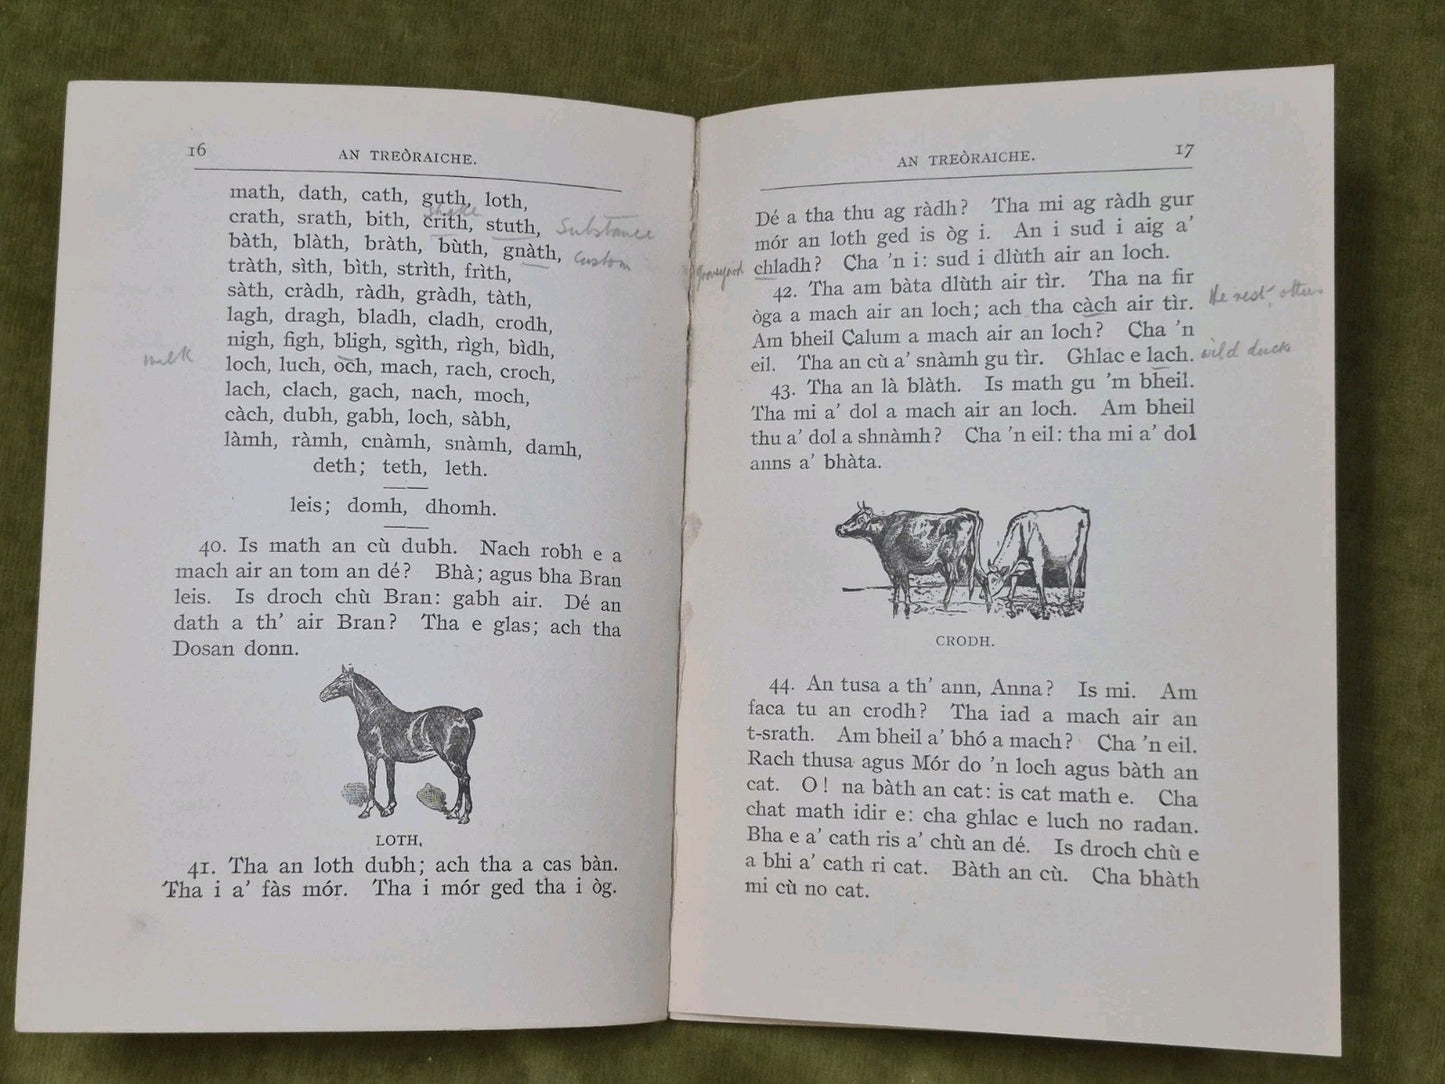 16
AN TREÒRAICHE.
math, dath, cath, guth, loth,
shake
crath, srath, bith, crith, stuth, Substance
bàth, blàth, bràth, bùth, gnàth, custom
tràth, sìth, bìth, strìth, frìth,
sàth, cràdh, ràdh, gràdh, tàth,
lagh, dragh, bladh, cladh, crodh,
nigh, figh, bligh, sgìth, rìgh, bìdh,
milk loch, luch, och, mach, rach, croch,
lach, clach, gach, nach, moch,
càch, dubh, gabh, loch, sàbh,
làmh, ràmh, cnàmh, snàmh, damh,
deth; teth, leth.
leis; domh, dhomh.
40. Is math an cù dubh. Nach robh e a
mach air an tom an dé? Bhà; agus bha Bran
leis. Is droch chù Bran: gabh air. Dé an
dath a th' air Bran? Tha e glas; ach tha
Dosan donn.
LOTH.
41. Tha an loth dubh; ach tha a cas bàn.
Tha i a' fàs mór. Tha i mór ged tha i òg.
AN TREÒRAICHE.
17
Dé a tha thu ag ràdh? Tha mi ag ràdh gur
mór an loth ged is òg i. An i sud i aig a'
graveyard chladh? Cha 'n i: sud i dlùth air an loch.
42. Tha am bàta dlùth air tìr. Tha na fir
òga a mach air an loch; ach tha càch air tìr. the rest, others
Am bheil Calum a mach air an loch? Cha 'n
eil. Tha an cù a' snàmh gu tìr. Ghlac e lach. wild duck
43. Tha an là blàth. Is math gu 'm bheil.
Tha mi a' dol a mach air an loch. Am bheil
thu a' dol a shnàmh? Cha 'n eil: tha mi a' dol
anns a' bhàta.
CRODH.
44. An tusa a th' ann, Anna? Is mi. Am
faca tu an crodh? Tha iad a mach air an
t-srath. Am bheil a' bhó a mach? Cha 'n eil.
Rach thusa agus Mór do 'n loch agus bàth an
cat. O! na bàth an cat: is cat math e. Cha
chat math idir e: cha ghlac e luch no radan.
Bha e a' cath ris a' chù an dé. Is droch chù e
a bhi a' cath ri cat. Bàth an cù. Cha bhàth
mi cù no cat.